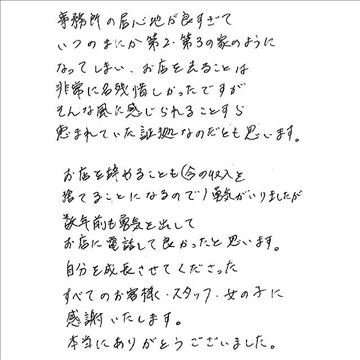 事務所の居心地が良すぎて
いつのまにか第2・第3の家のように
なってしまい、お店を去ることは
非常に名残惜しかったですが
そんな風に感じられることすら
恵まれていた証拠なのだとも思います。
お店を辞めることも(今の収入を
捨てることになるので)勇気がいりましたが
数年前も勇気を出して
お店に電話して良かったと思います。
自分を成長させてくださった
すべてのお客様・スタッフ・女の子に
感謝いたします。
本当にありがとうございました。